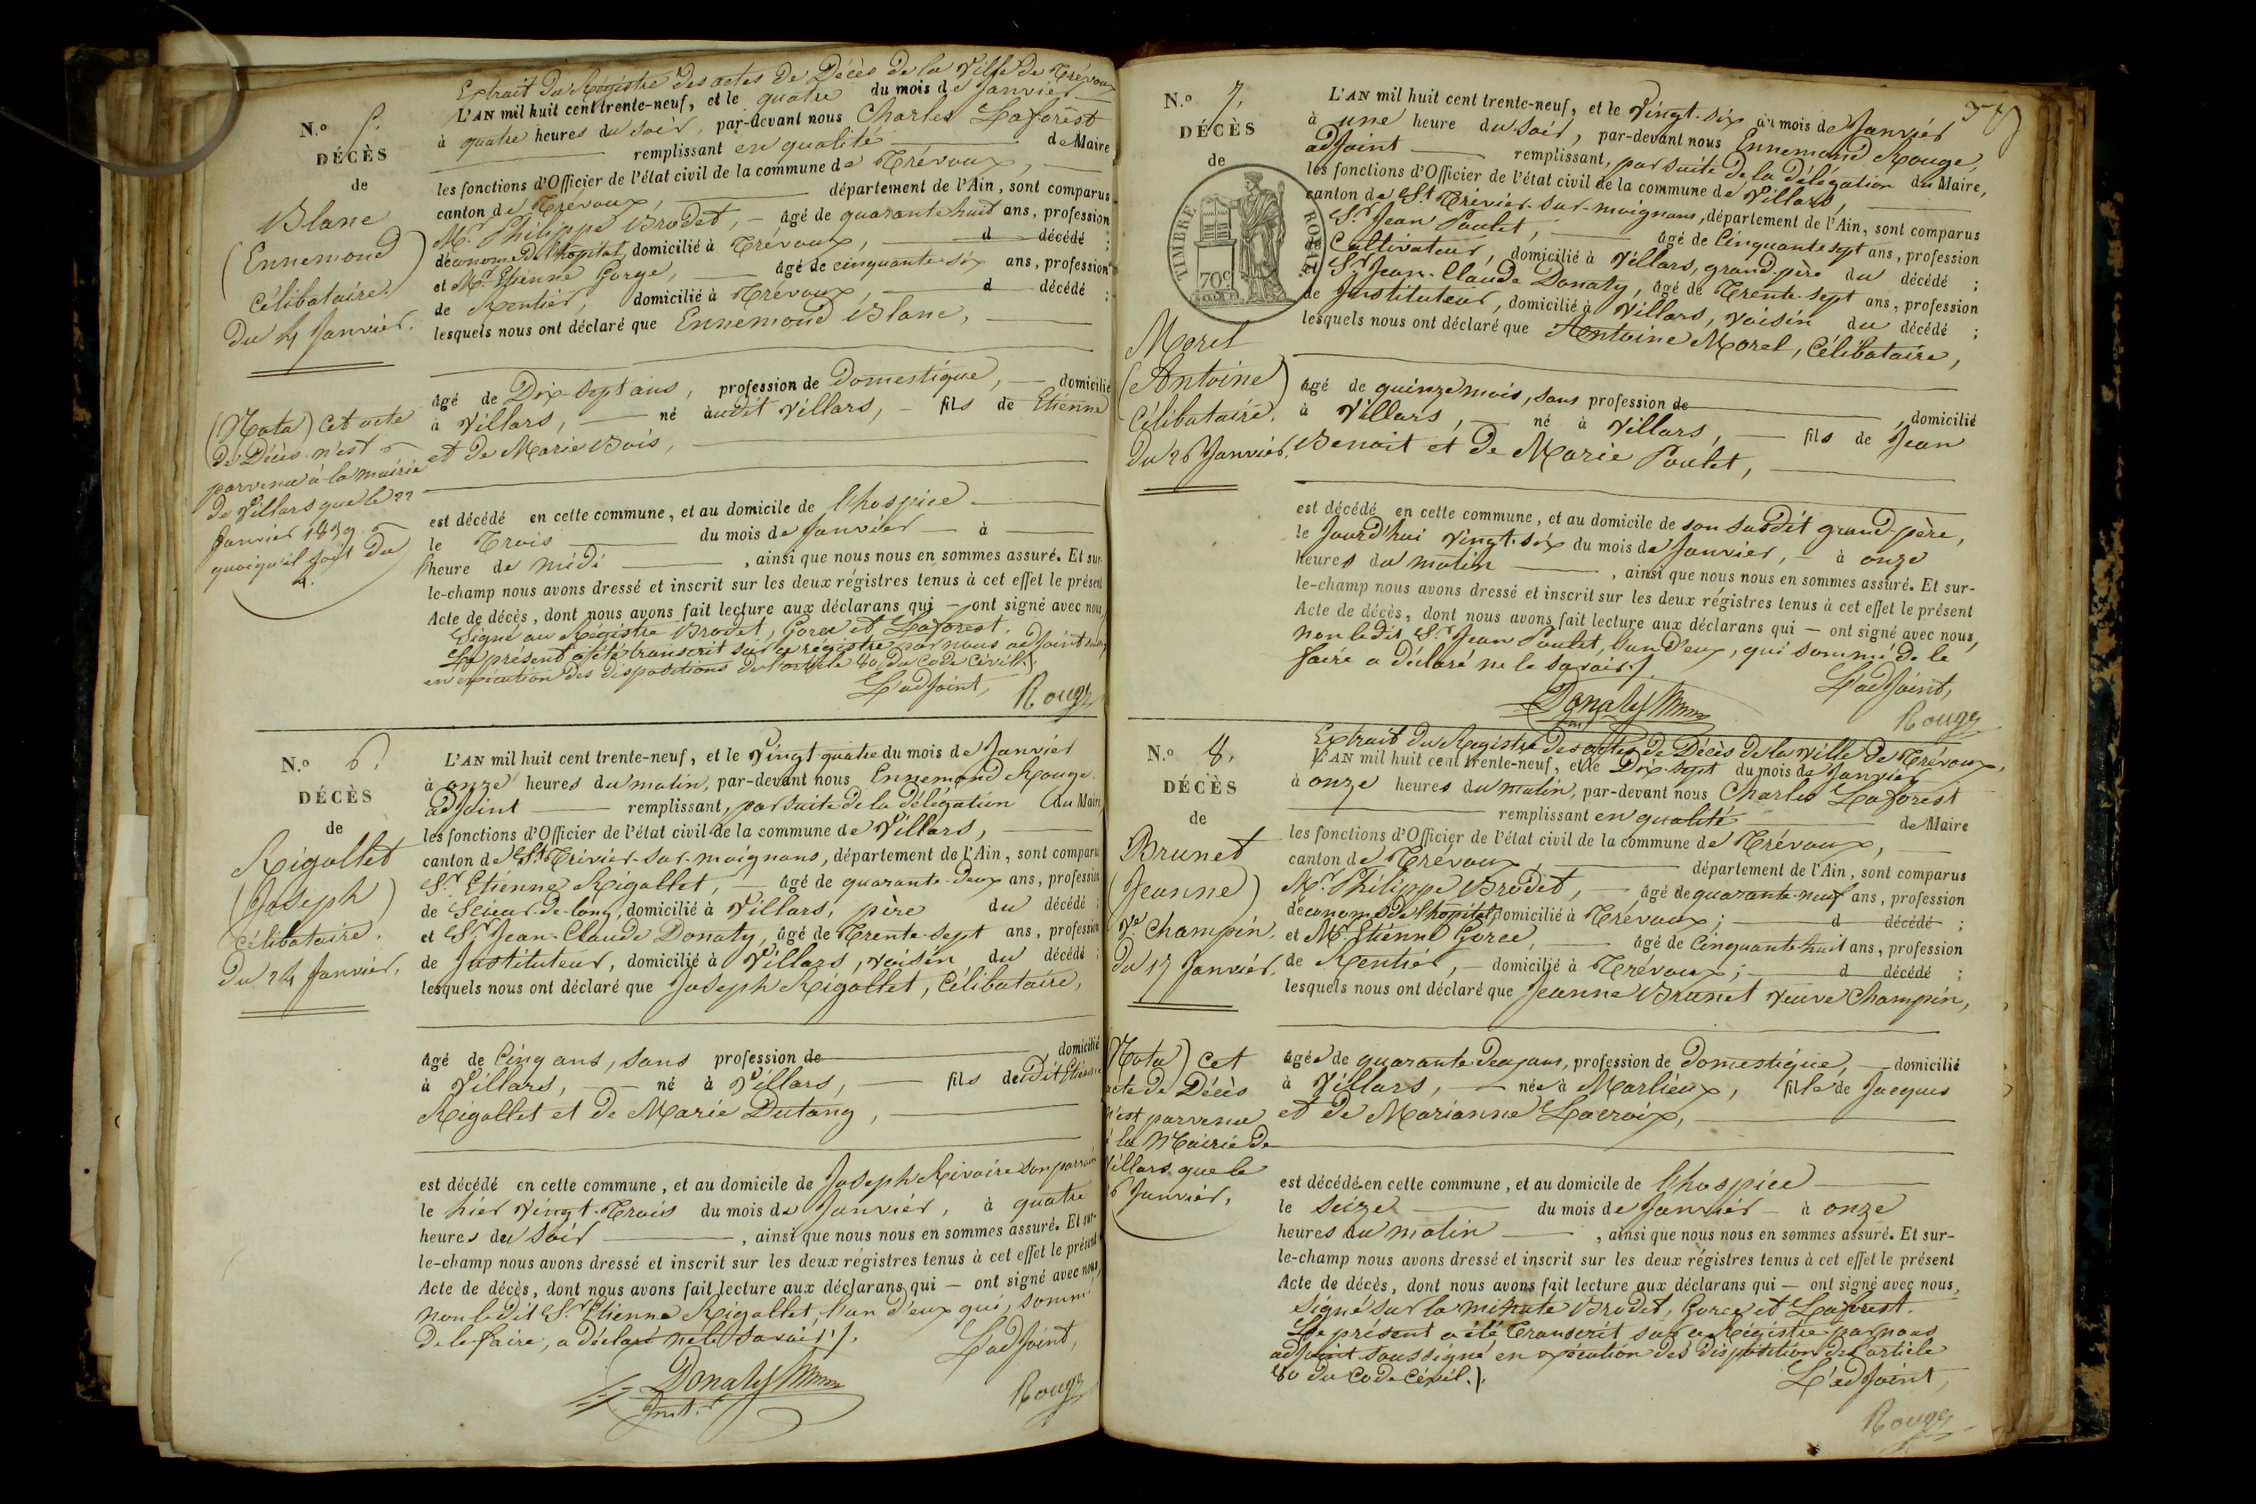 N.o 5.
DÉCÈS
de
Blanc
(Ennemond)
Célibataire.
Du 4 Janvier.
(Nota) Cet acte
de Décès n'est
parvenu à la mairie
de Villars que le 22
Janvier 1839.
quoiqu'il soit du
4.
Extrait du Régistre des actes de Décès de la Ville de Trévoux
L'AN mil huit cent trente-neuf, et le quatre du mois de Janvier
à quatre heures du soir, par-devant nous Charles Laforest
remplissant en qualité de Maire
les fonctions d'Officier de l'état civil de la commune de Trévoux,
canton de Trévoux, département de l'Ain, sont comparus
Mr. Philippe Brodet, âgé de quarante huit ans, profession
d'économe de l'hôpital, domicilié à Trévoux, d décédé ;
et Mr. Etienne Gorge, âgé de cinquante-six ans, profession
de Rentier, domicilié à Trévoux, d décédé ;
lesquels nous ont déclaré que Ennemond Blanc,
âgé de Dix-sept ans, profession de Domestique, domicilié
à Villars, né audit Villars, fils de Etienne
et de Marie Bois,
est décédé en cette commune, et au domicile de l'hospice
le Trois du mois de Janvier à
heure de midi , ainsi que nous nous en sommes assuré. Et sur-
le-champ nous avons dressé et inscrit sur les deux régistres tenus à cet effet le présent
Acte de décès, dont nous avons fait lecture aux déclarans qui — ont signé avec nous,
Signé au Régistre Brodet, Gorce et Laforest.
Le présent a été transcrit sur ce régistre par nous adjoint
en exécution des dispositions de l'article 80 du Code Civil./.
L'adjoint,
Rouge
N.o 6.
DÉCÈS
de
Rigollet
(Joseph)
Célibataire.
Du 24 Janvier,
L'AN mil huit cent trente-neuf, et le Vingt-quatre du mois de Janvier
à onze heures du matin, par-devant nous Ennemond Rouge
adjoint remplissant, par suite de la délégation du Maire,
les fonctions d'Officier de l'état civil de la commune de Villars,
canton de St. Trivier-sur-moignans, département de l'Ain, sont comparus
Sr. Etienne Rigollet, âgé de quarante-deux ans, profession
de Scieur-de-long, domicilié à Villars, père du décédé ;
et Sr. Jean-Claude Donaty, âgé de Trente-sept ans, profession
de Instituteur, domicilié à Villars, voisin du décédé ;
lesquels nous ont déclaré que Joseph Rigollet, Célibataire,
âgé de Cinq ans, sans profession de domicilié
à Villars, né à Villars, fils de dit Etienne
Rigollet et de Marie Dutang,
est décédé en cette commune, et au domicile de Joseph Rivoire son parrain
le hier Vingt-Trois du mois de Janvier, à quatre
heures du soir , ainsi que nous nous en sommes assuré. Et sur-
le-champ nous avons dressé et inscrit sur les deux régistres tenus à cet effet le présent
Acte de décès, dont nous avons fait lecture aux déclarans qui — ont signé avec nous,
non ledit Sr. Etienne Rigollet, l'un d'eux qui, sommé
de le faire, a déclaré ne le savoir./.
L'adjoint,
Donaty
Inst.r
Rouge
58
N.o 7.
DÉCÈS
de
TIMBRE ROYAL
70c
Morel
(Antoine)
Célibataire.
Du 26 Janvier.
L'AN mil huit cent trente-neuf, et le Vingt-six du mois de Janvier
à une heure du soir, par-devant nous Ennemond Rouge,
adjoint remplissant, par suite de la délégation du Maire,
les fonctions d'Officier de l'état civil de la commune de Villars,
canton de St. Trivier-sur-moignans, département de l'Ain, sont comparus
Sr. Jean Poulet, âgé de Cinquante sept ans, profession
de Cultivateur, domicilié à Villars, grand-père du décédé ;
Sr. Jean-Claude Donaty, âgé de Trente-sept ans, profession
de Instituteur, domicilié à Villars, voisin du décédé ;
lesquels nous ont déclaré que Antoine Morel, Célibataire,
âgé de quinze mois, sans profession de , domicilié
à Villars, né à Villars, fils de Jean
Benoit et de Marie Poulet,
est décédé en cette commune, et au domicile de son susdit grand-père,
le Jourd'hui Vingt-six du mois de Janvier, à onze
heures du matin , ainsi que nous nous en sommes assuré. Et sur-
le-champ nous avons dressé et inscrit sur les deux régistres tenus à cet effet le présent
Acte de décès, dont nous avons fait lecture aux déclarans qui — ont signé avec nous,
non ledit Sr. Jean Poulet, l'un d'eux, qui sommé de le
faire a déclaré ne le savoir./.
L'adjoint,
Donaty
Rouge
N.o 8.
DÉCÈS
de
Brunet
(Jeanne)
Ve. Champin.
Du 17 Janvier.
(Nota) Cet
acte de Décès
n'est parvenu
à la Mairie de
Villars que le
Janvier,
Extrait du Régistre des actes de Décès de la Ville de Trévoux,
L'AN mil huit cent trente-neuf, et le Dix-sept du mois de Janvier
à onze heures du matin, par-devant nous Charles Laforest
remplissant en qualité de Maire
les fonctions d'Officier de l'état civil de la commune de Trévoux,
canton de Trévoux, département de l'Ain, sont comparus
Mr. Philippe Brodet, âgé de quarante-neuf ans, profession
d'économe de l'hopital, domicilié à Trévoux ; d décédé ;
et Mr. Etienne Gorce, âgé de Cinquante-huit ans, profession
de Rentier, domicilié à Trévoux ; d décédé ;
lesquels nous ont déclaré que Jeanne Brunet veuve Champin,
âgée de quarante-deux ans, profession de Domestique, domicilié
à Villars, née à Marlieux, fille de Jacques
et de Marianne Lacroix,
est décédée en cette commune, et au domicile de l'hospice
le Seize du mois de Janvier à onze
heures du matin , ainsi que nous nous en sommes assuré. Et sur-
le-champ nous avons dressé et inscrit sur les deux régistres tenus à cet effet le présent
Acte de décès, dont nous avons fait lecture aux déclarans qui — ont signé avec nous,
Signé sur la minute Brodet, Gorce et Laforest.
Le présent a été transcrit sur ce Régistre par nous
adjoint soussigné en exécution des disposition de l'article
80 du Code Civil./.
L'adjoint,
Rouge